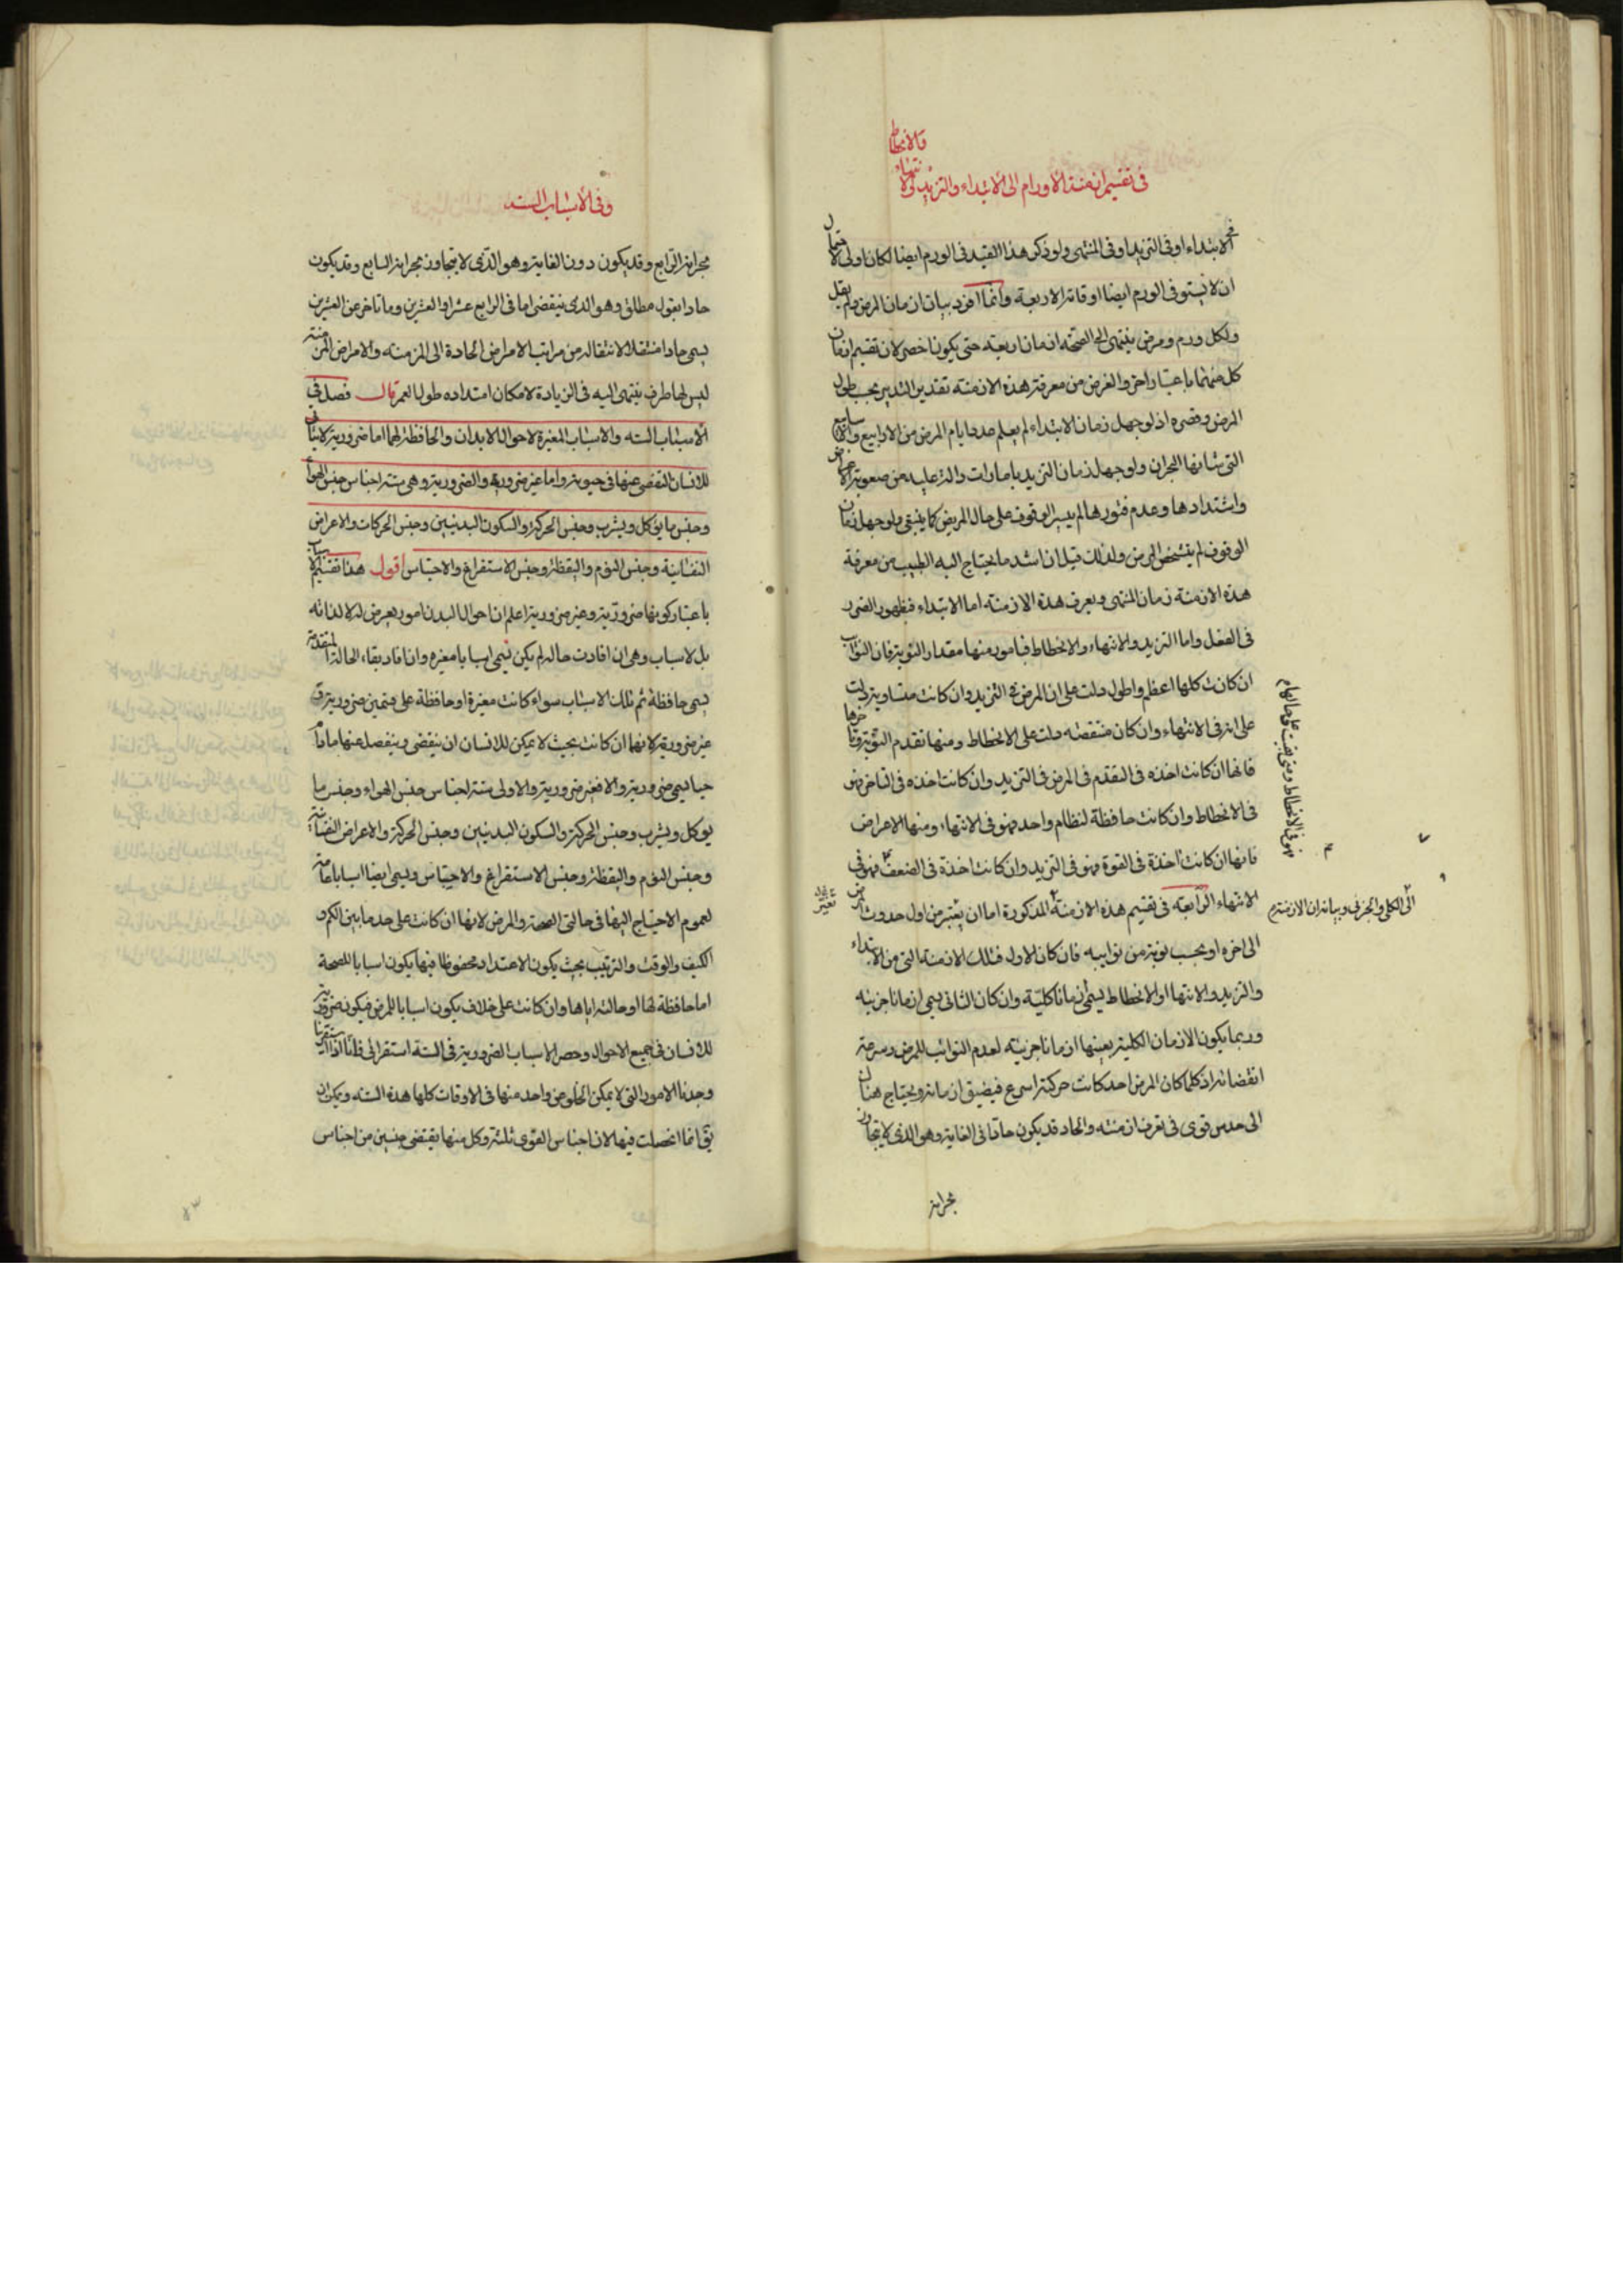 في تقسيم ازمنة الاورام الى الابتداء والتزيد والانتهاء
والانحطاط
الابتداء او في التزيد او في المنتهى ولو ذكر هذا القيد في الورم ايضا لكان اولى لاحتمال
ان لا يستوفي الورم ايضا اوقاته الاربعة وانما افرد بيان ازمان المرض ولم يقل
ولكل ورم ومرض ينتهي الى الصحة ازمان اربعة حتى يكون اخصر لان تقسيم ازمان
كل منهما باعتبار اخر والغرض من معرفة هذه الازمنة تقدير التدبير بحسب طول
المرض وقصره اذ لو جهل زمان الابتداء لم يعلم عدد ايام المرض من الارابيع والاسابيع
التي شانها البحران ولو جهل زمان التزيد بامارات دالة عليه من صعوبة الاعراض
واشتدادها وعدم فتورها لم يتيسر الوقوف على حال المريض كما ينبغي ولو جهل زمان
الوقوف لم يتشخص المرض ولذلك قيل ان اشد ما يحتاج اليه الطبيب من معرفة
هذه الازمنة زمان المنتهى ويعرف هذه الازمنة اما الابتداء فبظهور الضرر
في الفعل واما التزيد والانتهاء والانحطاط فبامور منها مقدار النوبة فان النوائب
ان كانت كلها اعظم واطول دلت على ان المرض في التزيد وان كانت متساوية دلت
على انه في الانتهاء وان كان منتقصة دلت على الانحطاط ومنها تقدم النوبة وتاخرها
فانها ان كانت اخذه في التقدم في المرض في التزيد وان كانت اخذه في التاخر فهو
في الانحطاط وان كانت حافظة لنظام واحد فهو في الانتهاء ومنها الاعراض
فانها ان كانت اخذة في القوة فهو في التزيد وان كانت اخذة في الضعف فهو في
فهو في الانحطاط ومتى بقيت على حالها م
الانتهاء الرابعة في تقسيم هذه الازمنة المذكورة اما ان يعتبر من اول حدوث المرض
الى الكلي والجزئي وبيانه ان الازمنة م
الى اخره او بحسب نوبة من نوائبه فان كان الاول فتلك الازمنة التي من الابتداء
والتزيد والانتهاء والانحطاط يسمى زمانا كلية وان كان الثاني يسمى ازمانا جزئية
وربما يكون الازمان الكلية بعينها ازمانا جزئية لعدم النوائب للمرض وسرعة
انقضائه اذ كلما كان المرض احد كانت حركته اسرع فيضيق ازمانه ويحتاج هنا
الى حدس قوى في تعرف ازمنته والحاد قد يكون حادا في الغاية وهو الذي لا يتجاوز
بحرانه
وفي الاسباب الستة
بحرانه الرابع وقد يكون دون الغاية وهو الذي لا يتجاوز بحرانه السابع وقد يكون
حادا بقول مطلق وهو الذي ينقضي اما في الرابع عشر او العشرين وما تاخر عن العشرين
يسمى حادا منتقلا لانتقاله من مراتب الامراض الحادة الى المزمنة والامراض المزمنة
ليس لها طرف ينتهي اليه في الزيادة لامكان امتداده طول العمر قال فصل في
الاسباب الستة والاسباب المغيرة لاحوال الابدان والحافظة لها اما ضرورية لا يتاتى
للانسان التفصي عنها في حيوته واما غير ضرورية والضرورية وهي ستة اجناس جنس الهواء
وجنس ما يؤكل ويشرب وجنس الحركة والسكون البدنيين وجنس الحركات والاعراض
النفسانية وجنس النوم واليقظة وجنس الاستفراغ والاحتباس اقول هذا تقسيم الاسباب
باعتبار كونها ضرورية وغير ضرورية اعلم ان احوال البدن امور يعرض له لا لذاته
بل لاسباب وهي ان افادت حاله لم يكن تسمى اسبابا مغيره وان افاد بقاء الحالة المتقدمة
يسمى حافظة ثم تلك الاسباب سواء كانت مغيرة او حافظة على قسمين ضرورية و
غير ضرورية لانها ان كانت بحيث لا يمكن للانسان ان ينقضى وينفصل عنها ما دام
حيا يسمى ضرورية والا فغير ضرورية والاولى ستة اجناس جنس الهواء وجنس ما
يوكل ويشرب وجنس الحركة والسكون البدنيين وجنس الحركة والاعراض النفسانية
وجنس النوم واليقظة وجنس الاستفراغ والاحتباس ويسمى ايضا اسبابا عامة
لعموم الاحتياج اليها في حالتي الصحة والمرض لانها ان كانت على حد ما بين الكم و
الكيف والوقت والترتيب بحيث يكون الاعتدال محفوظا فيها يكون اسبابا للصحة
اما حافظة لها او حالته اياها وان كانت على خلاف يكون اسبابا للمرض فيكون ضرورية
للانسان في جميع الاحوال وحصر الاسباب الضرورية في الستة استقرائي فلانا اذا استقرينا
وجدنا الامور التي لا يمكن الخلو من واحد منها في الاوقات كلها هذه الستة ويمكن ان
يق انما انحصلت فيها لان اجناس القوى ثلثة وكل منها يقتضي جنسين من اجناس